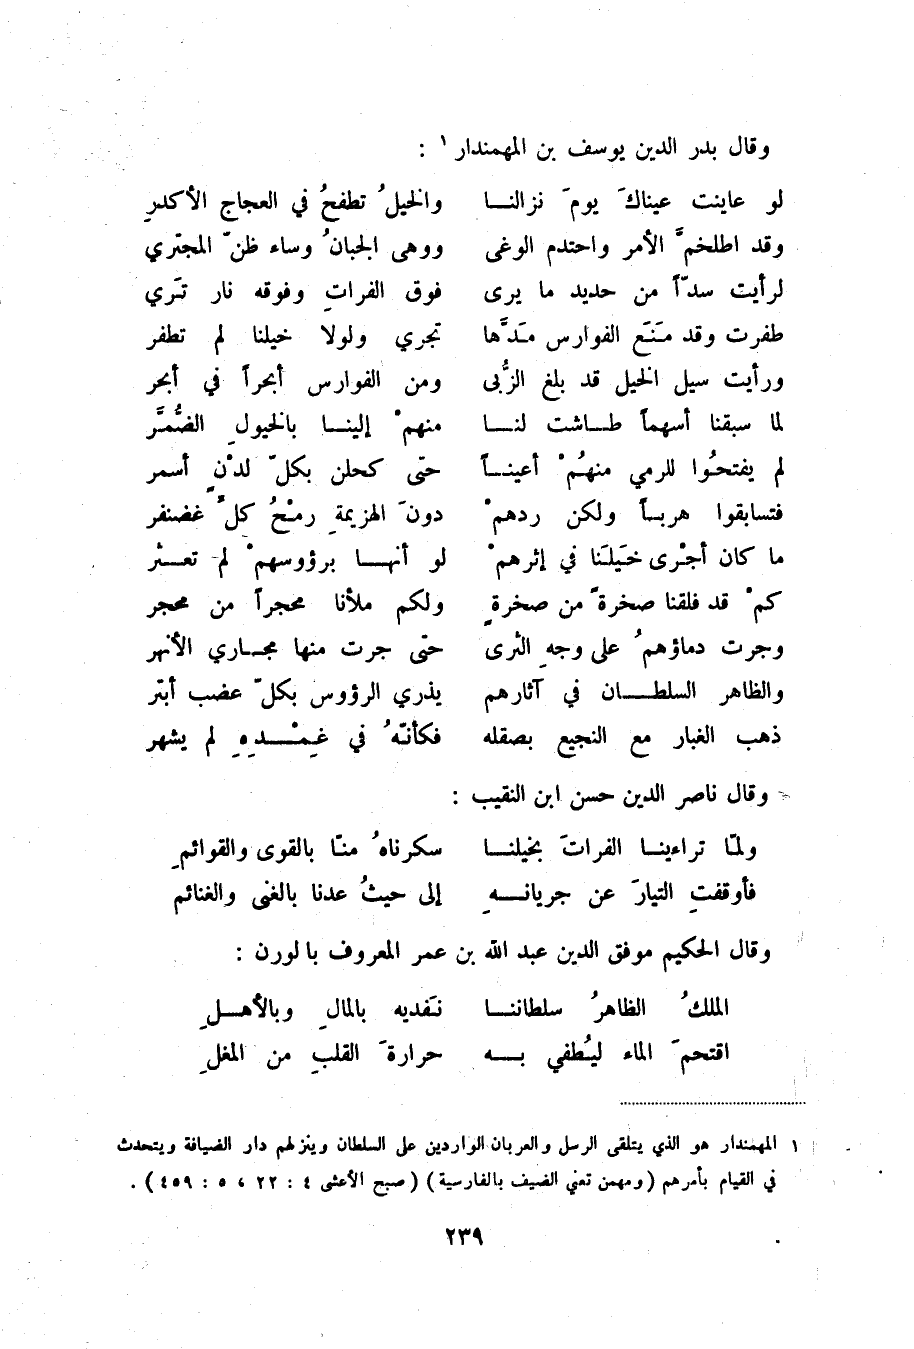 وقال بدر الدين يوسف بن المهمندار ١ :
لو عاينت عيناكَ يومَ نزالنــا والخيلُ تطفحُ في العجاج الأكدرِ
وقد اطلخمَّ الأمر واحتدم الوغى ووهى الجبانُ وساء ظنّ المجتري
لرأيت سدّاً من حديد ما يرى فوق الفراتِ وفوقه نار تَري
طفرت وقد مَنَعَ الفوارس مَدَّها تجري ولولا خيلنا لم تطفر
ورأيت سيل الخيل قد بلغ الزُّبى ومن الفوارس أبحراً في أبحر
لما سبقنا أسهماً طــاشت لنــا منهمْ إلينــا بالخيولِ الضُّمَّر
لم يفتحُوا للرمي منهُمْ أعينــاً حتّى كحلن بكلّ لدْنٍ أسمر
فتسابقوا هربــاً ولكن ردهمْ دونَ الهزيمةِ رمْحُ كلّ غضنفر
ما كان أجْرى خَيلَنا في إثرهمْ لو أنهــا برؤوسهمْ لم تعــثْر
كمْ قد فلقنا صخرةً من صخرةٍ ولكم ملأنا محجراً من محجر
وجرت دماؤهمُ على وجهِ الثرى حتّى جرت منها مجــاري الأنهر
والظاهر السلطــان في آثارهم يذري الرؤوس بكلّ عضب أبتر
ذهب الغبار مع النجيع بصقله فكأنّهُ في غِمْــدِهِ لم يشهر
وقال ناصر الدين حسن ابن النقيب :
ولمّا تراءينــا الفراتَ بخيلنــا سكرناهُ منّا بالقوى والقوائمِ
فأوقفتِ التيارَ عن جريانــهِ إلى حيثُ عدنا بالغنى والغنائم
وقال الحكيم موفق الدين عبد الله بن عمر المعروف بالورن :
الملكُ الظاهرُ سلطاننــا نَفديه بالمالِ وبالأهــلِ
اقتحمَ الماء ليُطفي بــه حرارةَ القلبِ من المغلِ
١ المهمندار هو الذي يتلقى الرسل والعربان الواردين على السلطان وينزلهم دار الضيافة ويتحدث
في القيام بأمرهم (ومهمن تعني الضيف بالفارسية) (صبح الأعشى ٤ : ٢٢ ، ٥ : ٤٥٩) .
٢٣٩